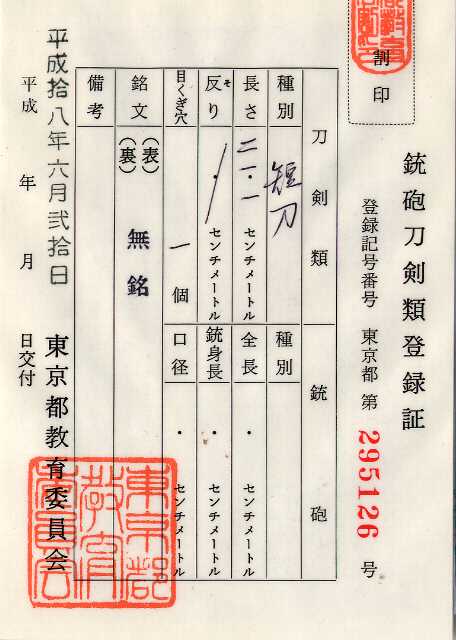 割印
銃砲刀剣類登録証
登録記号番号 東京都 第 295126 号
刀剣類 銃砲
種別 短刀 種別
長さ 二一・一 センチメートル 全長 ・ センチメートル
反り そ ・ センチメートル 銃身長 ・ センチメートル
目くぎ穴 一 個 口径 ・ センチメートル
銘文 (表) 無銘
(裏)
備考
東京都教育委員会
平成拾八年六月弐拾日
平成 年 月 日交付
東京都
教育
委員会